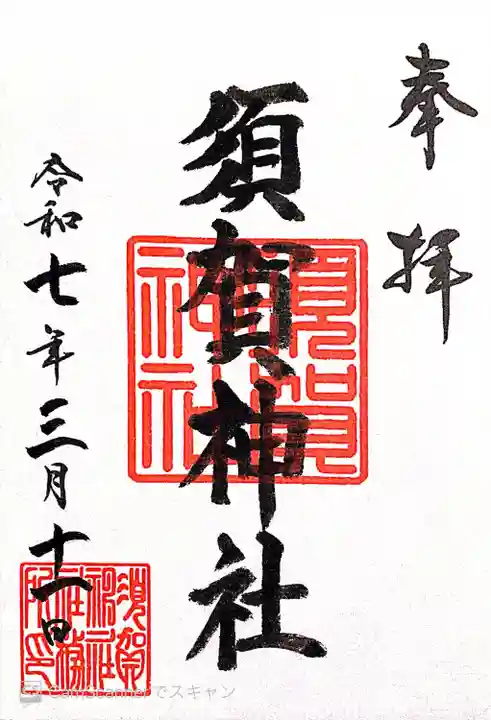 奉拝
須賀神社
令和七年三月十一日
須賀神社
須賀神社社務所印
CamScannerでスキャン